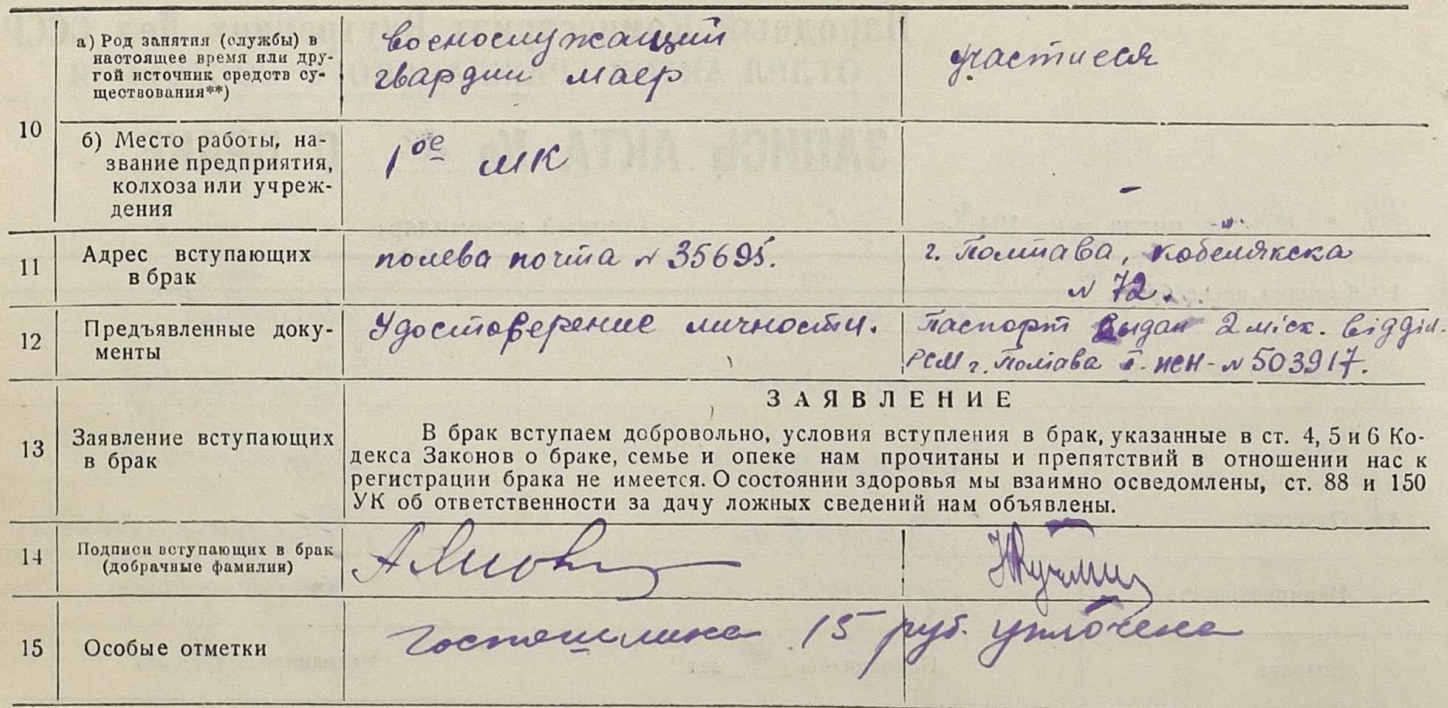 10
а) Род занятия (службы) в
настоящее время или дру-
гой источник средств су-
ществования**)
военослужащий
гвардии маер
участиеся
б) Место работы, на-
звание предприятия,
колхоза или учреж-
дения
1ое МК
-
11
Адрес вступающих
в брак
полева почта № 35695.
г. Полтава, Кобелякска
№ 72.
12
Предъявленные доку-
менты
Удостоверение личности.
Паспорт выдан 2 міск. відділ.
РСМ г. Полтава № 503917.
13
Заявление вступающих
в брак
ЗАЯВЛЕНИЕ
В брак вступаем добровольно, условия вступления в брак, указанные в ст. 4, 5 и 6 Ко-
декса Законов о браке, семье и опеке нам прочитаны и препятствий в отношении нас к
регистрации брака не имеется. О состоянии здоровья мы взаимно осведомлены, ст. 88 и 150
УК об ответственности за дачу ложных сведений нам объявлены.
14
Подписи вступающих в брак
(добрачные фамилии)
15
Особые отметки
Госпошлина 15 руб. уплочена